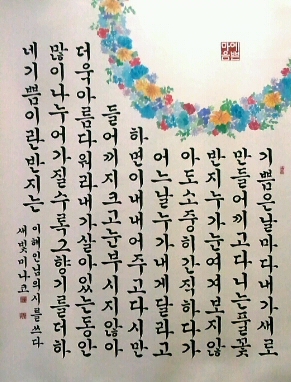 기쁨은날마다내가새로
만들어끼고다니는풀꽃
반지누가눈여겨보지않
아도소중히간직하다가
어느날누가내게달라고
하면이내내어주고다시만
들어끼지크고눈부시지않아
더욱아름다워라내가살아있는동안
많이나누어가질수록그향기를더하
네기쁨이란반지는
이해인님의시를쓰다
새빛미나코